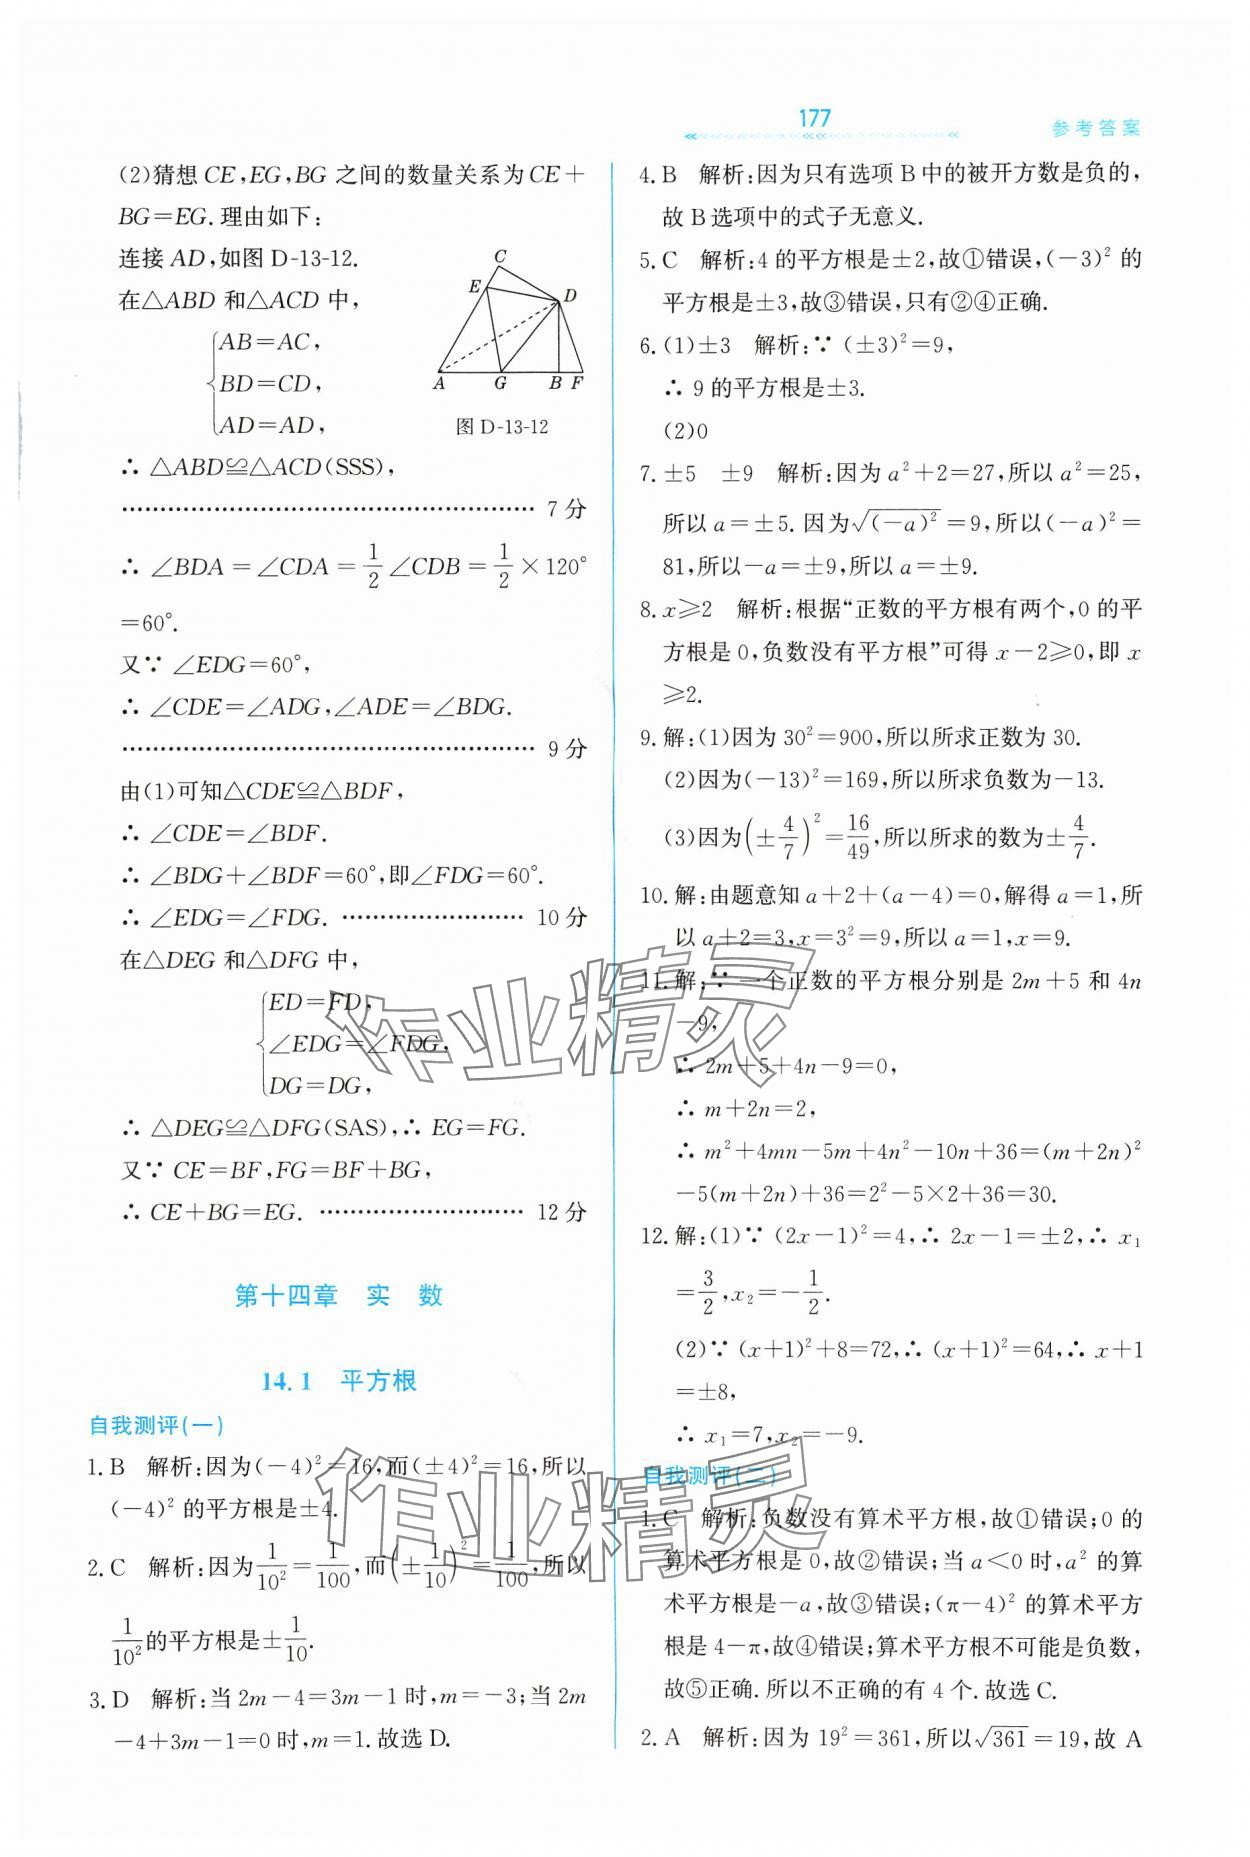 177
参考答案
(2)猜想 CE,EG,BG 之间的数量关系为 CE+
BG=EG.理由如下:
连接 AD,如图 D-13-12.
在△ABD 和△ACD 中,
AB=AC,
BD=CD,
AD=AD,
C
E
D
A
G
B
F
图 D-13-12
∴ △ABD≌△ACD(SSS),
………………………………………… 7 分
∴ ∠BDA=∠CDA=1/2∠CDB=1/2×120°
=60°.
又∵ ∠EDG=60°,
∴ ∠CDE=∠ADG,∠ADE=∠BDG.
………………………………………… 9 分
由(1)可知△CDE≌△BDF,
∴ ∠CDE=∠BDF.
∴ ∠BDG+∠BDF=60°,即∠FDG=60°.
∴ ∠EDG=∠FDG. ………………… 10 分
在△DEG 和△DFG 中,
ED=FD,
∠EDG=∠FDG,
DG=DG,
∴ △DEG≌△DFG(SAS),∴ EG=FG.
又∵ CE=BF,FG=BF+BG,
∴ CE+BG=EG. …………………… 12 分
第十四章 实 数
14.1 平方根
自我测评(一)
1.B 解析:因为(-4)²=16,而(±4)²=16,所以
(-4)² 的平方根是±4.
2.C 解析:因为1/10²=1/100,而(±1/10)²=1/100,所以
1/10²的平方根是±1/10.
3.D 解析:当 2m-4=3m-1 时,m=-3;当 2m
-4+3m-1=0 时,m=1.故选 D.
4.B 解析:因为只有选项 B 中的被开方数是负的,
故 B 选项中的式子无意义.
5.C 解析:4 的平方根是±2,故①错误,(-3)² 的
平方根是±3,故③错误,只有②④正确.
6.(1)±3 解析:∵ (±3)²=9,
∴ 9 的平方根是±3.
(2)0
7.±5 ±9 解析:因为 a²+2=27,所以 a²=25,
所以 a=±5.因为√(-a)²=9,所以(-a)²=
81,所以-a=±9,所以 a=±9.
8.x≥2 解析:根据“正数的平方根有两个,0 的平
方根是 0,负数没有平方根”可得 x-2≥0,即 x
≥2.
9.解:(1)因为 30²=900,所以所求正数为 30.
(2)因为(-13)²=169,所以所求负数为-13.
(3)因为(±4/7)²=16/49,所以所求的数为±4/7.
10.解:由题意知 a+2+(a-4)=0,解得 a=1,所
以 a+2=3,x=3²=9,所以 a=1,x=9.
11.解:∵ 一个正数的平方根分别是 2m+5 和 4n
-9,
∴ 2m+5+4n-9=0,
∴ m+2n=2,
∴ m²+4mn-5m+4n²-10n+36=(m+2n)²
-5(m+2n)+36=2²-5×2+36=30.
12.解:(1)∵ (2x-1)²=4,∴ 2x-1=±2,∴ x₁
=3/2,x₂=-1/2.
(2)∵ (x+1)²+8=72,∴ (x+1)²=64,∴ x+1
=±8,
∴ x₁=7,x₂=-9.
自我测评(二)
1.C 解析:负数没有算术平方根,故①错误;0 的
算术平方根是 0,故②错误;当 a<0 时,a² 的算
术平方根是-a,故③错误;(π-4)² 的算术平方
根是 4-π,故④错误;算术平方根不可能是负数,
故⑤正确.所以不正确的有 4 个.故选 C.
2.A 解析:因为 19²=361,所以√361=19,故 A
作业精灵
作业精灵